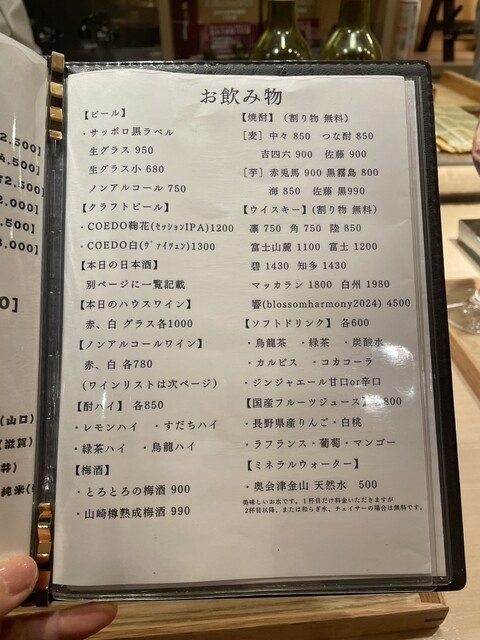 お飲み物
【ビール】
・サッポロ黒ラベル
生グラス 950
生グラス小 680
ノンアルコール 750
【クラフトビール】
・COEDO鞠花(ｾｯｼｮﾝIPA)1200
・COEDO白(ｳﾞｧｲﾂｪﾝ)1300
【本日の日本酒】
別ページに一覧記載
【本日のハウスワイン】
赤、白 グラス各1000
【ノンアルコールワイン】
赤、白 各780
（ワインリストは次ページ）
【酎ハイ】 各850
・レモンハイ ・すだちハイ
・緑茶ハイ ・烏龍ハイ
【梅酒】
・とろとろの梅酒 900
・山崎樽熟成梅酒 990
【焼酎】（割り物 無料）
［麦］中々 850 つな酎 850
吉四六 900 佐藤 900
［芋］赤兎馬 900 黒霧島 800
海 850 佐藤 黒990
【ウイスキー】(割り物 無料)
凛 750 角 750 陸 850
富士山麓 1100 富士 1200
碧 1430 知多 1430
マッカラン 1800 白州 1980
響(blossomharmony2024) 4500
【ソフトドリンク】 各600
・烏龍茶 ・緑茶 ・炭酸水
・カルピス ・コカコーラ
・ジンジャエール甘口or辛口
【国産フルーツジュース】 800
・長野県産りんご・白桃
・ラフランス・葡萄・マンゴー
【ミネラルウォーター】
・奥会津金山 天然水 500
美味しいお水です。１杯目だけ料金いただきますが
２杯目以降、または和らぎ水、チェイサーの場合は無料です。
2.500]
4.500]
2.500]
2.000]
.500]
3.000]
0]
(山口)
(滋賀)
井)
純米(